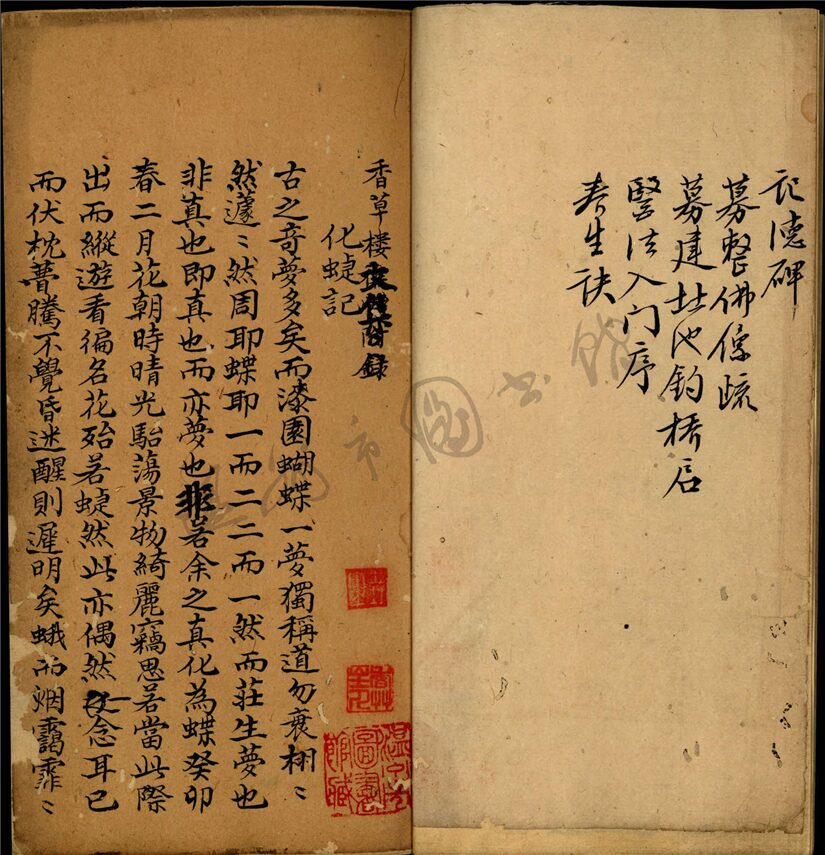 記德碑
募整佛像疏
募建北池釣橋啓
醫法入门序
養生訣
香草楼
化蜨記
古之奇夢多矣而漆園蝴蝶一夢獨稱道勿衰栩〻
然蘧〻然周耶蝶耶一而二二而一然而莊生夢也
非真也即真也而亦夢也非若余之真化為蝶癸卯
春二月花朝時晴光駘蕩景物綺麗竊思若當此際
出而縱遊看徧名花殆若蜨然此亦偶然之念耳已
而伏枕瞢騰不覺昏迷醒則遲明矣蛾而烟靄霏〻
溫州市圖書館藏